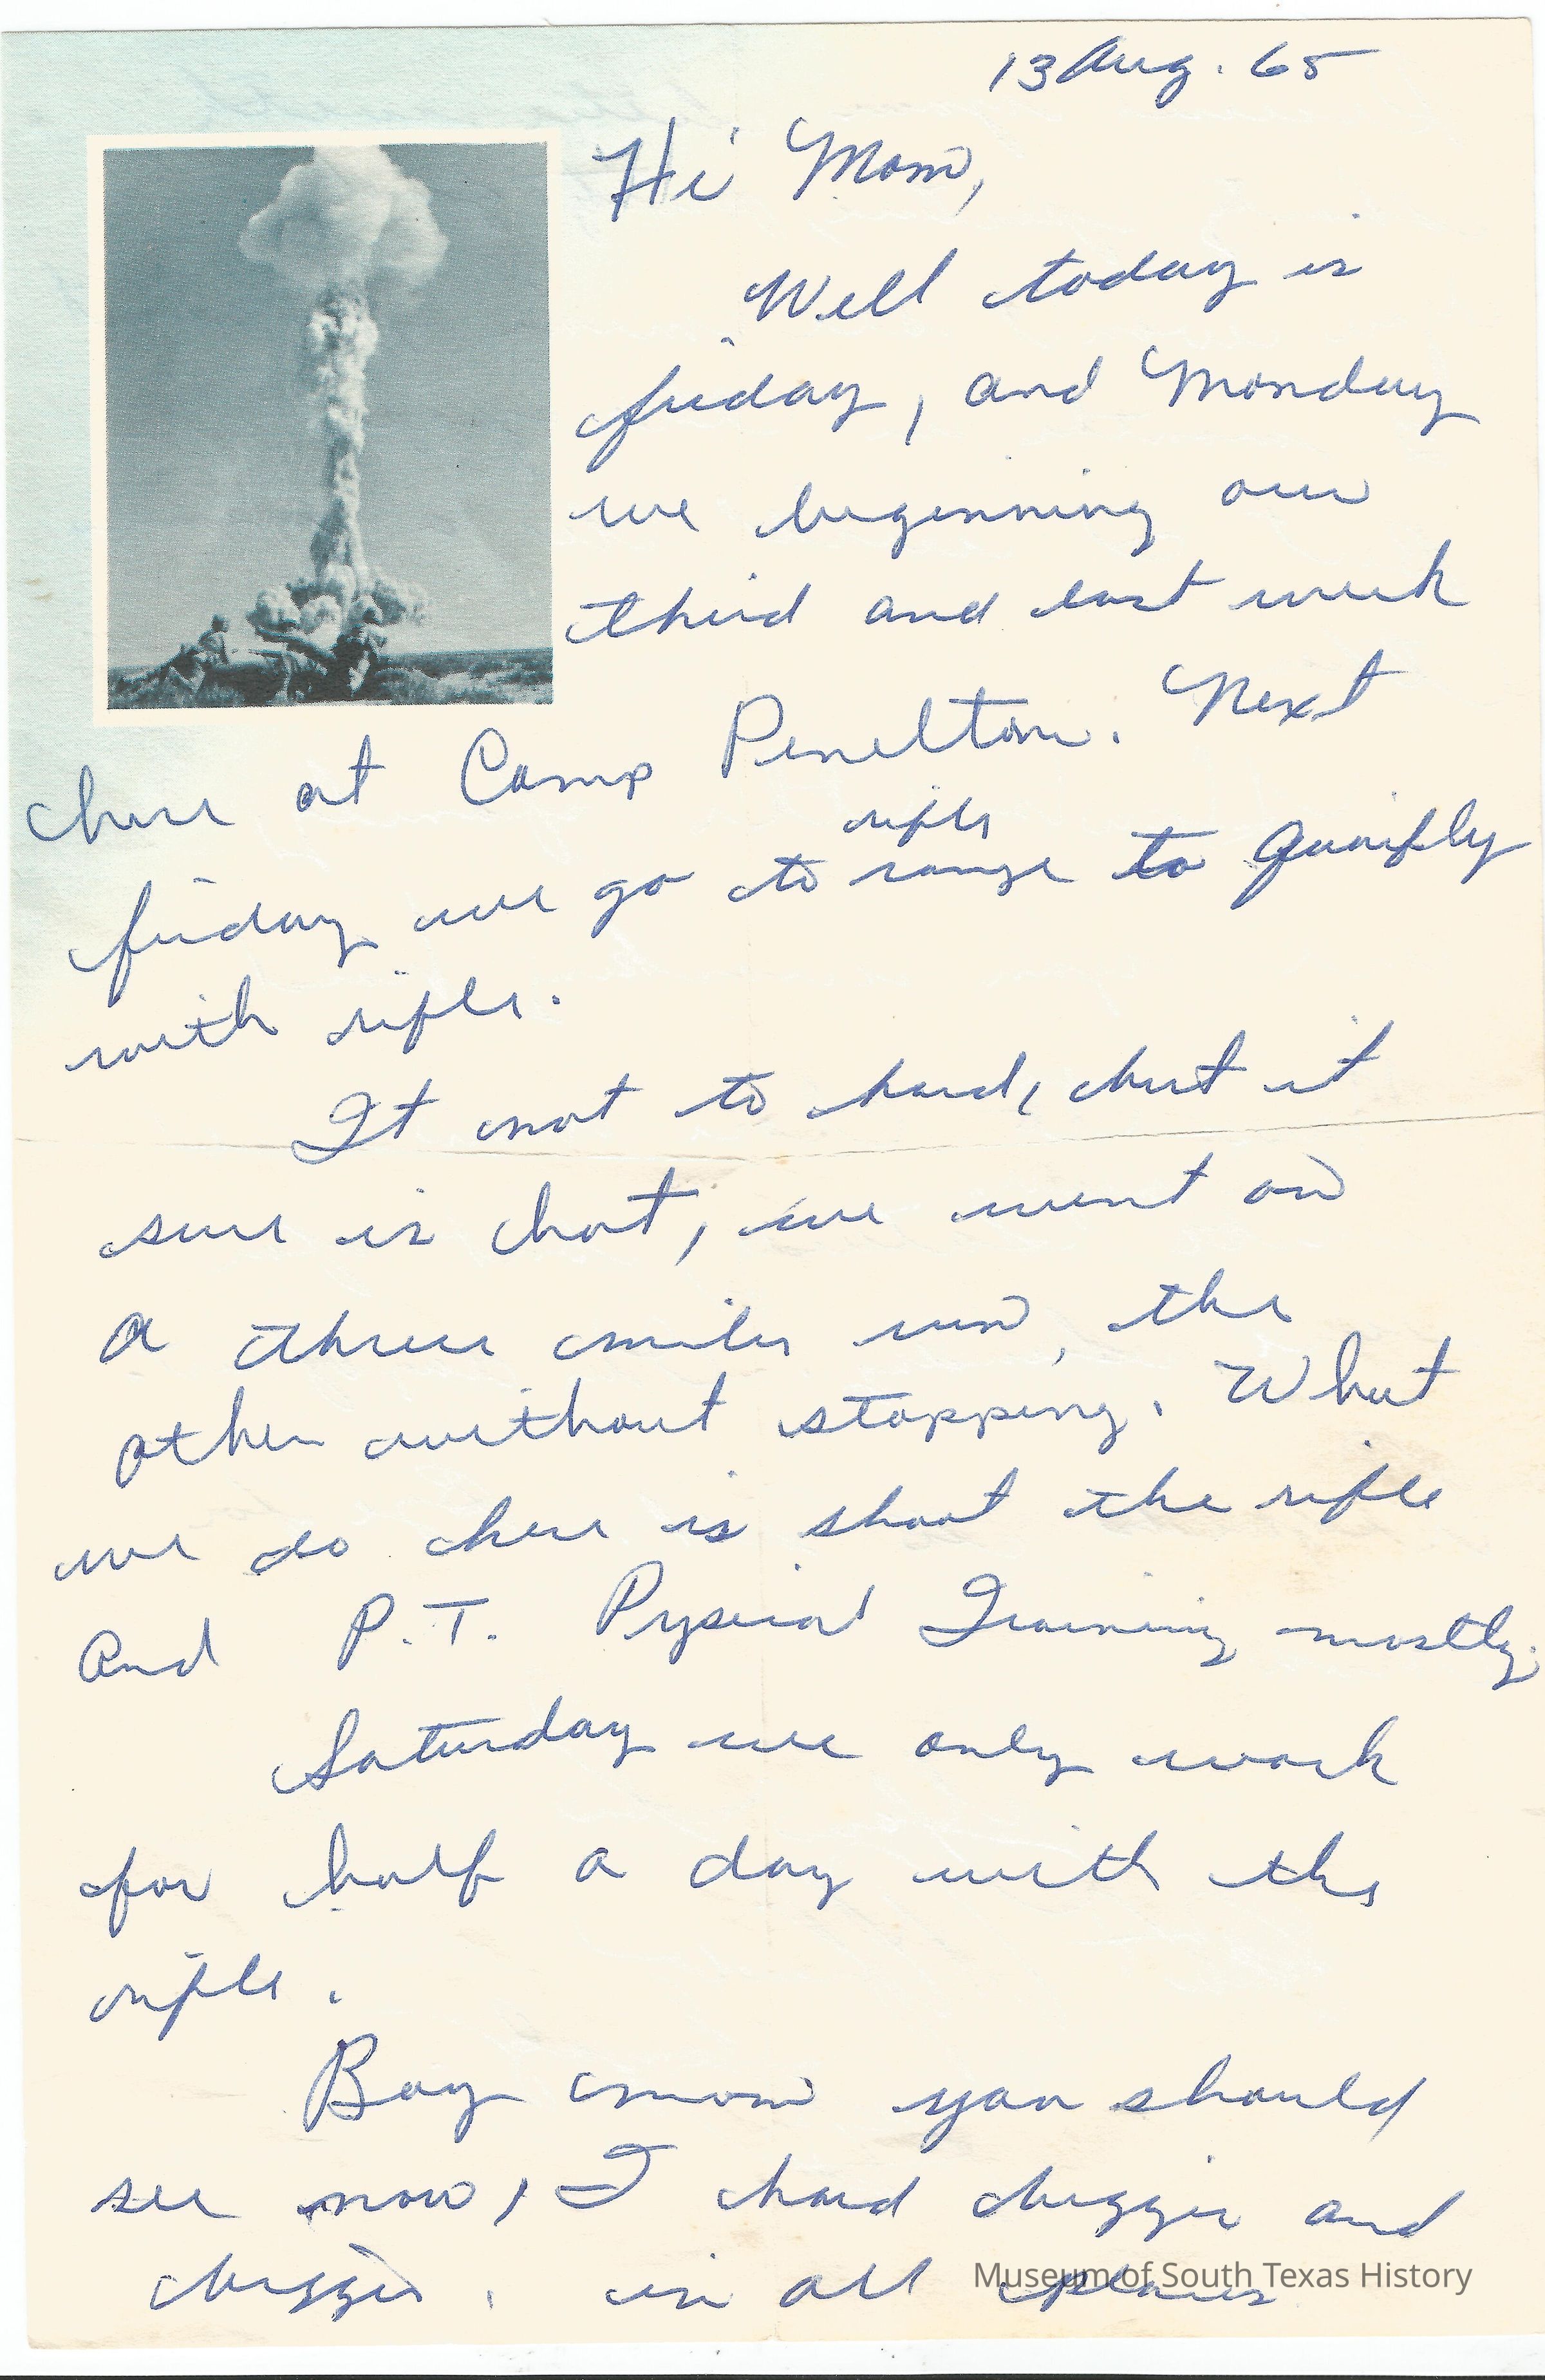 13 Aug. 65
Hi Mom,
Well today is
friday, and Monday
we beginning our
third and last week
here at Camp Penelton. Next
rifle
friday we go to range to Quaifly
with rifle.
It not to hard, but it
sure is hot, we went on
a three miles run, the
other without stopping. What
we do here is shoot the rifle
and P.T. Pysical Training mostly.
Saturday we only work
for half a day with the
rifle.
Boy mom you should
see now, I hard bigger and
bigger. in all places
Museum of South Texas History